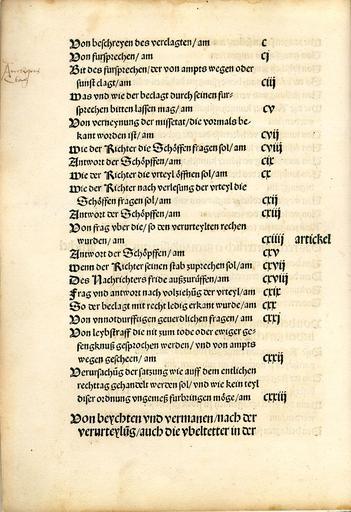 Von beschreyen des verclagten/ am c
Von fursprechen/ am cj
Bit des fursprechen/der von ampts wegen oder
sunst clagt/am ciij
Was vnd wie der beclagt durch seinen fur-
sprechen bitten lassen mag/ am cv
Von verneynung der missetat/die vormals be-
kant worden ist/ am cvij
Wie der Richter die Schöffen fragen sol/ am cviij
Antwort der Schöpffen/ am cix
Wie der Richter die vrteyl öffnen sol/ am cx
Wie der Richter nach verlesung der vrteyl die
Schöffen fragen sol/ am cxij
Antwort der Schöpffen/ am cxiij
Von frag vber die/ so den verurteylten rechen
wurden/ am cxiiij artickel
Antwort der Schöpffen/ am cxv
Wenn der Richter seinen stab zuprechen sol/ am cxvij
Des Nachrichters fride außzurüffen/am cxviij
Frag vnd antwort nach volziehũg der vrteyl/ am cxix
So der beclagt mit recht ledig erkant wurde/am cxx
Von vnnotdurfftigen geuerdlichen fragen/ am cxxj
Von leybstraff die nit zum tode oder ewiger ge-
fengknuß gesprochen werden/ vnd von ampts
wegen gescheen/ am cxxij
Verursachũg der satzung wie auff dem entlichen
rechttag gehandelt werden sol/ vnd wie kein teyl
diser ordnung vngemeß furbringen möge/ am cxxiij
Von beychten vnd vermanen/nach der
verurteylũg/auch die vbeltetter in der